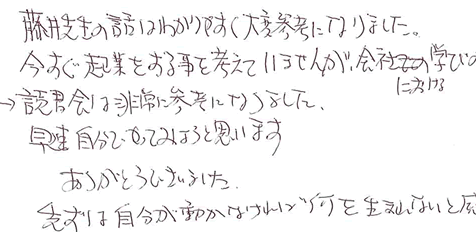 藤井先生の話はわかりやすく大変参考になりました。
今すぐ起業をする事を考えていませんが、会社における学びの
→読書会は非常に参考になりました。
早速自分でやってみようと思います
ありがとうございました。
まずは自分が動かなければ何も生まれないと